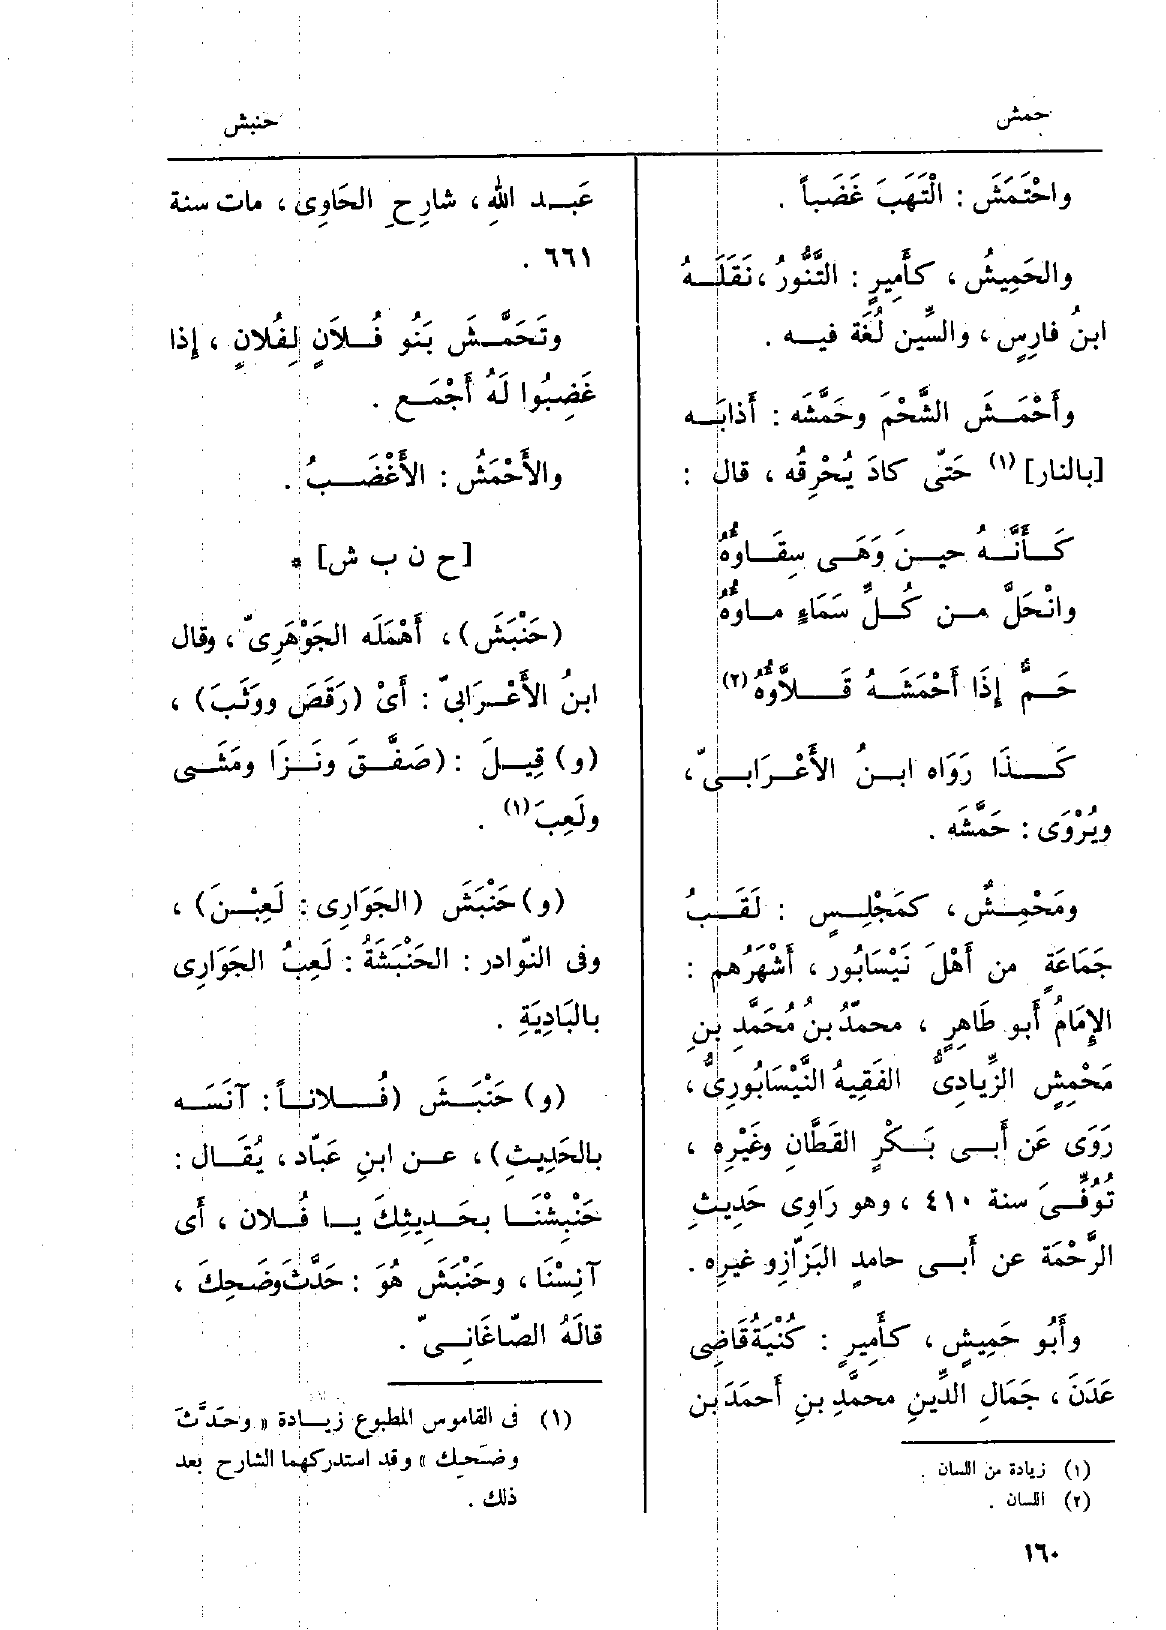 حمش
حنبش
واحْتَمَشَ : الْتَهَبَ غَضَباً .
والحَمِيشُ ، كأَمِيرٍ : التَّنُّورُ ، نَقَلَهُ
ابنُ فارِسٍ ، والسِّين لُغَة فيه .
وأَحْمَشَ الشَّحْمَ وحَمَّشَه : أَذابَه
[بالنار] (١) حَتّى كادَ يُحْرِقُه ، قال :
كَأَنَّهُ حينَ وَهَى سِقَاوُهُ
وانْحَلَّ من كُلِّ سَمَاءٍ ماوُهُ
حَمٌّ إِذَا أَحْمَشَهُ قَلاَّوُهُ (٢)
كَذَا رَوَاه ابنُ الأَعْرَابىّ ،
ويُرْوَى : حَمَّشَه .
ومَحْمِشٌ ، كمَجْلِسٍ : لَقَبُ
جَمَاعَةٍ من أَهْلَ نَيْسَابُور ، أَشْهَرُهم :
الإِمَامُ أَبو طَاهِرٍ ، محمدُ بنُ مُحَمَّدِ بنِ
مَحْمِشٍ الزِّيادِىُّ الفَقِيهُ النَّيْسَابُورِىُّ ،
رَوَى عَن أَبى بَكْرٍ القَطَّانِ وغَيْرِه ،
تُوُفِّىَ سنة ٤١٠ ، وهو رَاوِى حَدِيثِ
الرَّحْمَة عن أَبى حامدٍ البَزّازِ و غيرِه .
وأَبُو حَمِيشٍ ، كأَمِيرٍ : كُنْيَةُ قَاضِى
عَدَنَ ، جَمَالِ الدِّينِ محمَّدِ بنِ أَحمَدَ بن
(١) زيادة من اللسان .
(٢) اللسان .
١٦٠
عَبد اللهِ ، شارِحِ الحَاوِى ، مات سنة
٦٦١ .
وتَحَمَّشَ بَنُو فُلاَنٍ لِفُلانٍ ، إِذا
غَضِبُوا لَهُ أَجْمَع .
والأَحْمَشُ : الأَغْضَبُ .
[ح ن ب ش] *
(حَنْبَشَ) ، أَهْمَلَه الجَوْهَرِىّ ، وقال
ابنُ الأَعْرَابىّ : أَىْ (رَقَصَ ووَثَبَ) ،
(و) قِيلَ : (صَفَّقَ ونَزَا ومَشَى
ولَعِبَ (١) .
(و) حَنْبَشَ (الجَوَارِى : لَعِبْنَ) ،
وفى النّوادر : الحَنْبَشَةُ : لَعِبُ الجَوَارِى
بالبَادِيَةِ .
(و) حَنْبَشَ (فُلاناً : آنَسَه
بالحَدِيثِ) ، عن ابنِ عَبّاد ، يُقَال :
حَنْبِشْنَا بحَدِيثِكَ يا فُلان ، أَى
آنِسْنَا ، وحَنْبَشَ هُوَ : حَدَّثَ وضَحِكَ ،
قالَهُ الصّاغَانِىّ .
(١) فى القاموس المطبوع زيادة « وحَدَّثَ
وضَحِك » وقد استدركهما الشارح بعد
ذلك .